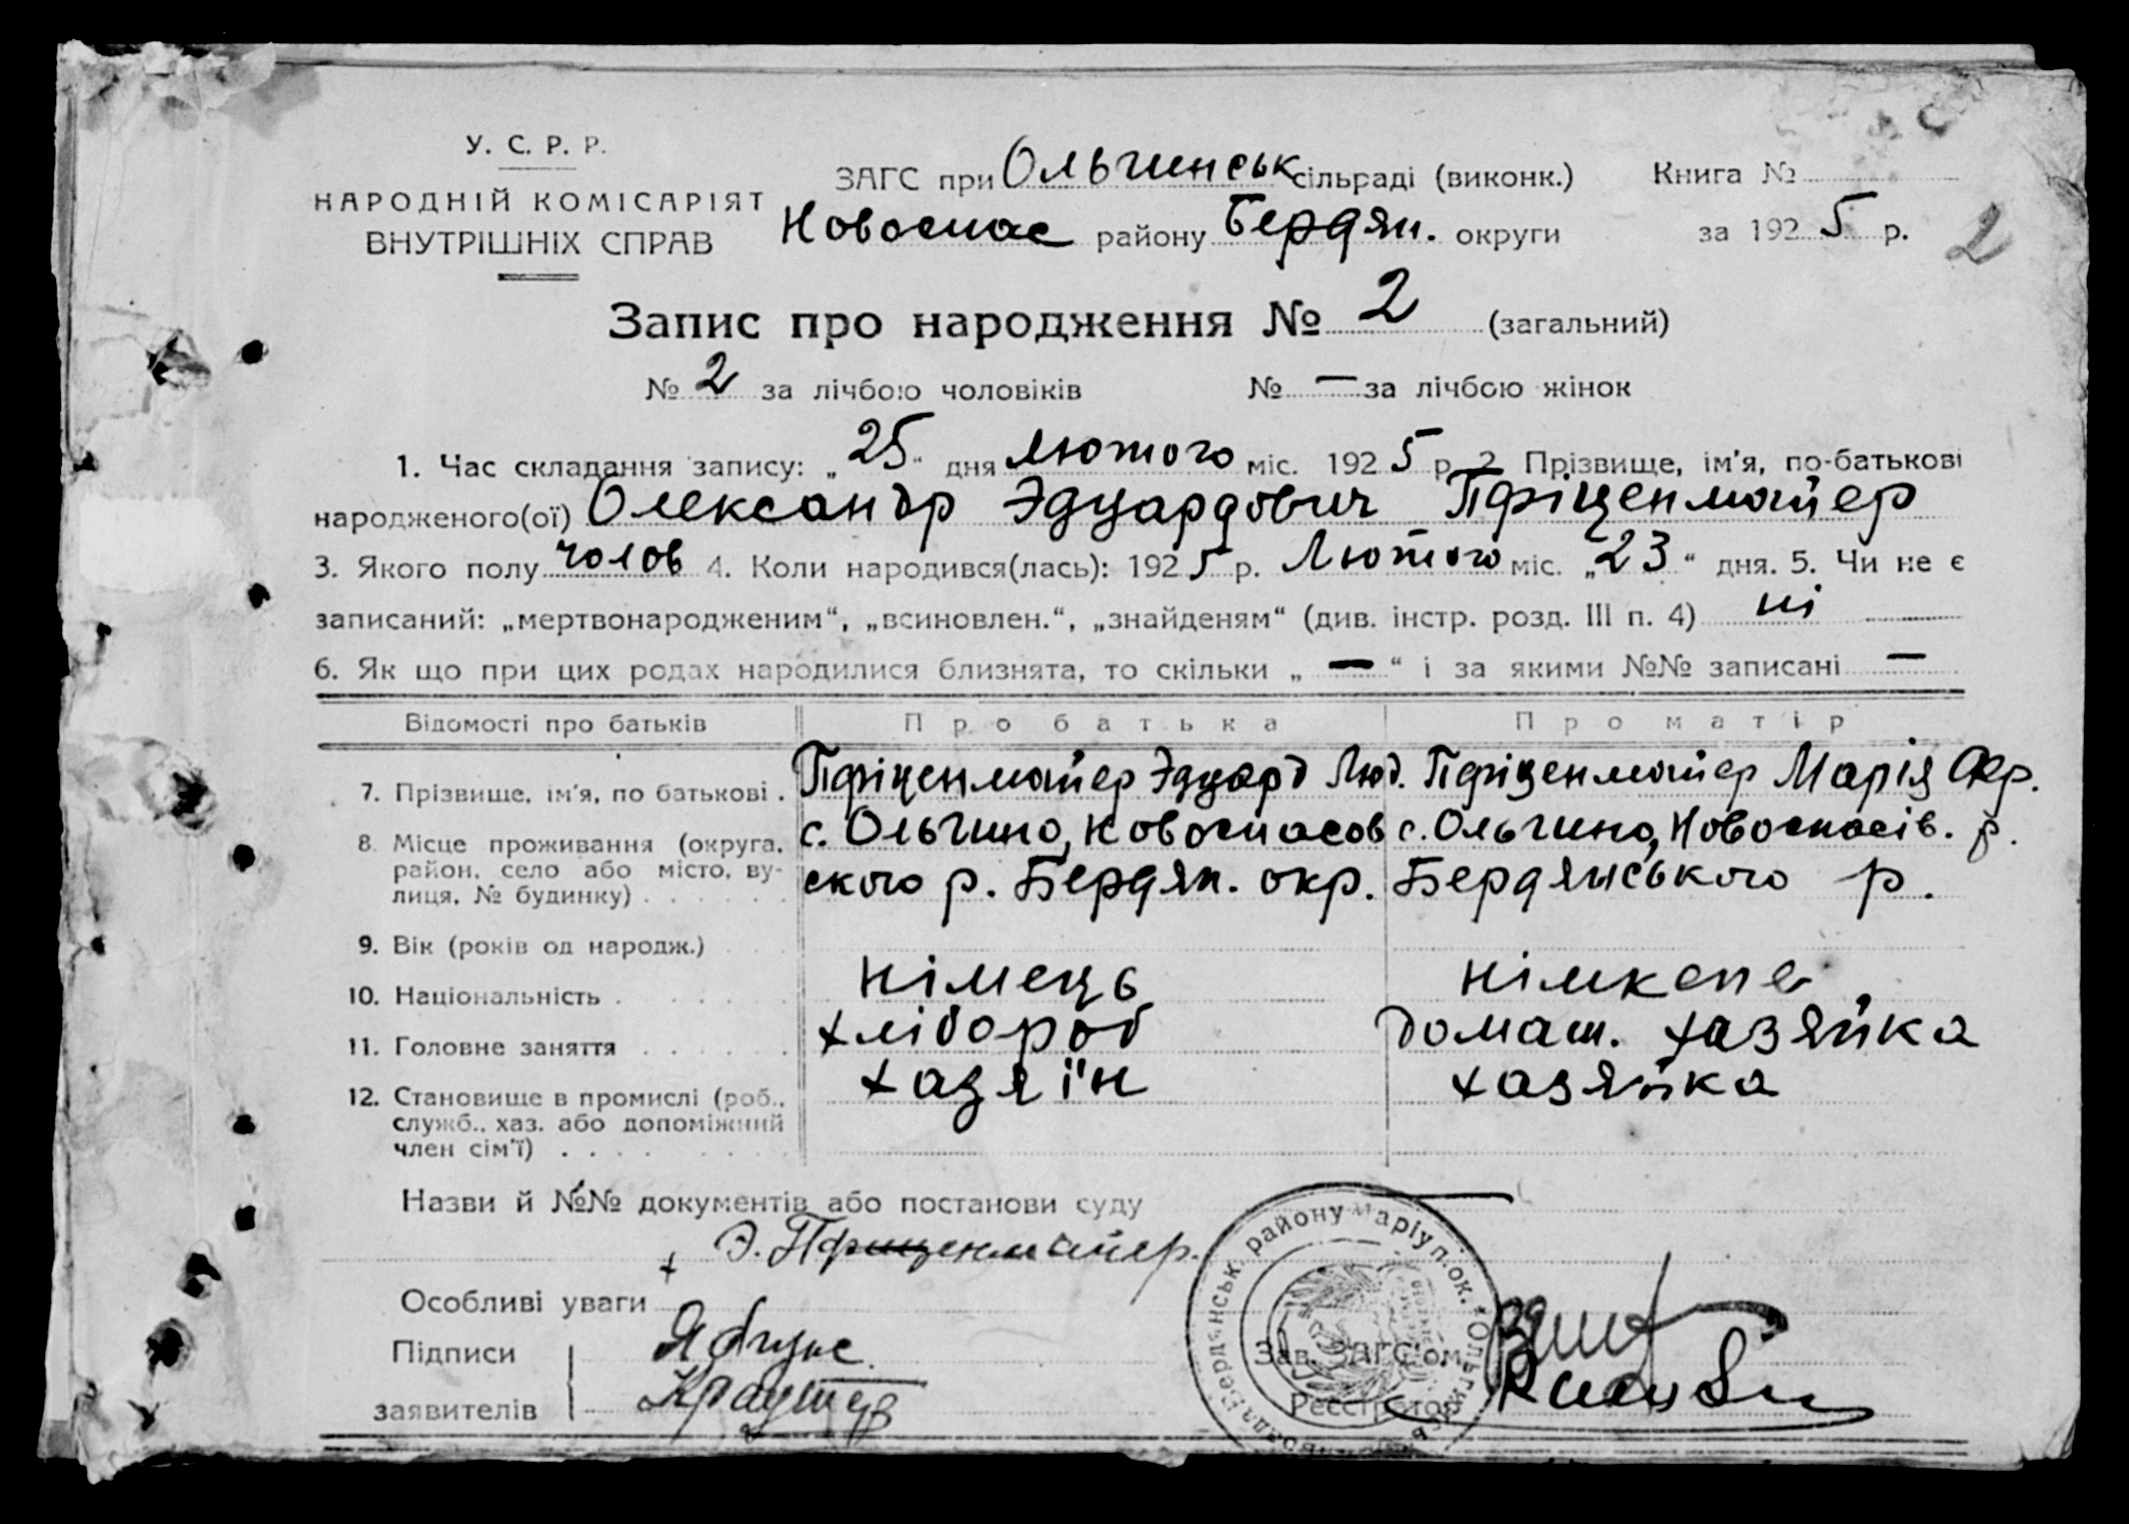 У. С. Р. Р.
НАРОДНІЙ КОМІСАРІЯТ
ВНУТРІШНІХ СПРАВ
ЗАГС при Ольгинськ сільраді (виконк.) Книга №
Новоспас району Бердян. округи за 1925 р. 2
Запис про народження № 2 (загальний)
№ 2 за лічбою чоловіків № — за лічбою жінок
1. Час складання запису: „25“ дня лютого міс. 1925 р. 2. Прізвище, ім’я, по-батькові
народженого(ої) Олександр Эдуардович Пфіценмайер
3. Якого полу чолов 4. Коли народився(лась): 1925 р. Лютого міс. „23“ дня. 5. Чи не є
записаний: „мертвонародженим“, „всиновлен.“, „знайденям“ (див. інстр. розд. III п. 4) ні
6. Як що при цих родах народилися близнята, то скільки „—“ і за якими №№ записані —
Відомості про батьків Про батька Про матір
7. Прізвище, ім’я, по батькові . Пфіценмайер Эдуард Люд. Пфіценмайер Марія
8. Місце проживання (округа, район, село або місто, вулиця, № будинку) с. Ольгино, Новоспасов с. Ольгино, Новоспасів. р.
ского р. Бердян. окр. Бердянського р.
9. Вік (років од народж.)
10. Національність німець
11. Головне заняття хлібороб домаш. хазяйка
12. Становище в промислі (роб., служб., хаз. або допоміжний член сім’ї) хазяїн хазяйка
Назви й №№ документів або постанови суду
Э. Пфиценмайер.
Особливі уваги
Підписи
заявителів
Зав. ЗАГС’ом
Реєстратор
району Маріуп. ок.